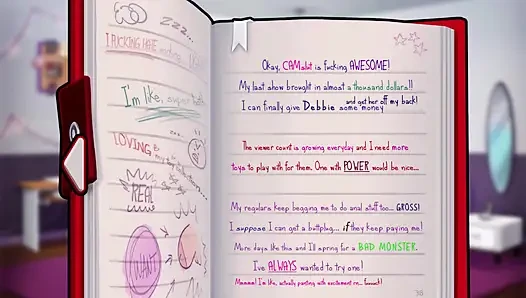 zzz...
I FUCKING HATE
I'm like, super
zz..
LOVING
REAL
WANT
Okay, CAMslut is fucking AWESOME!
My last show brought in almost a thousand dollars!!
I can finally give Debbie some money and get her off my back!
The viewer count is growing everyday and I need more
toys to play with for them. One with POWER would be nice...
My regulars keep begging me to do anal stuff too... GROSS!
I suppose I can get a buttplug... if they keep paying me!
More days like this and I'll spring for a BAD MONSTER.
I've ALWAYS wanted to try one!
I'm like, actually panting with excitement rn...
38